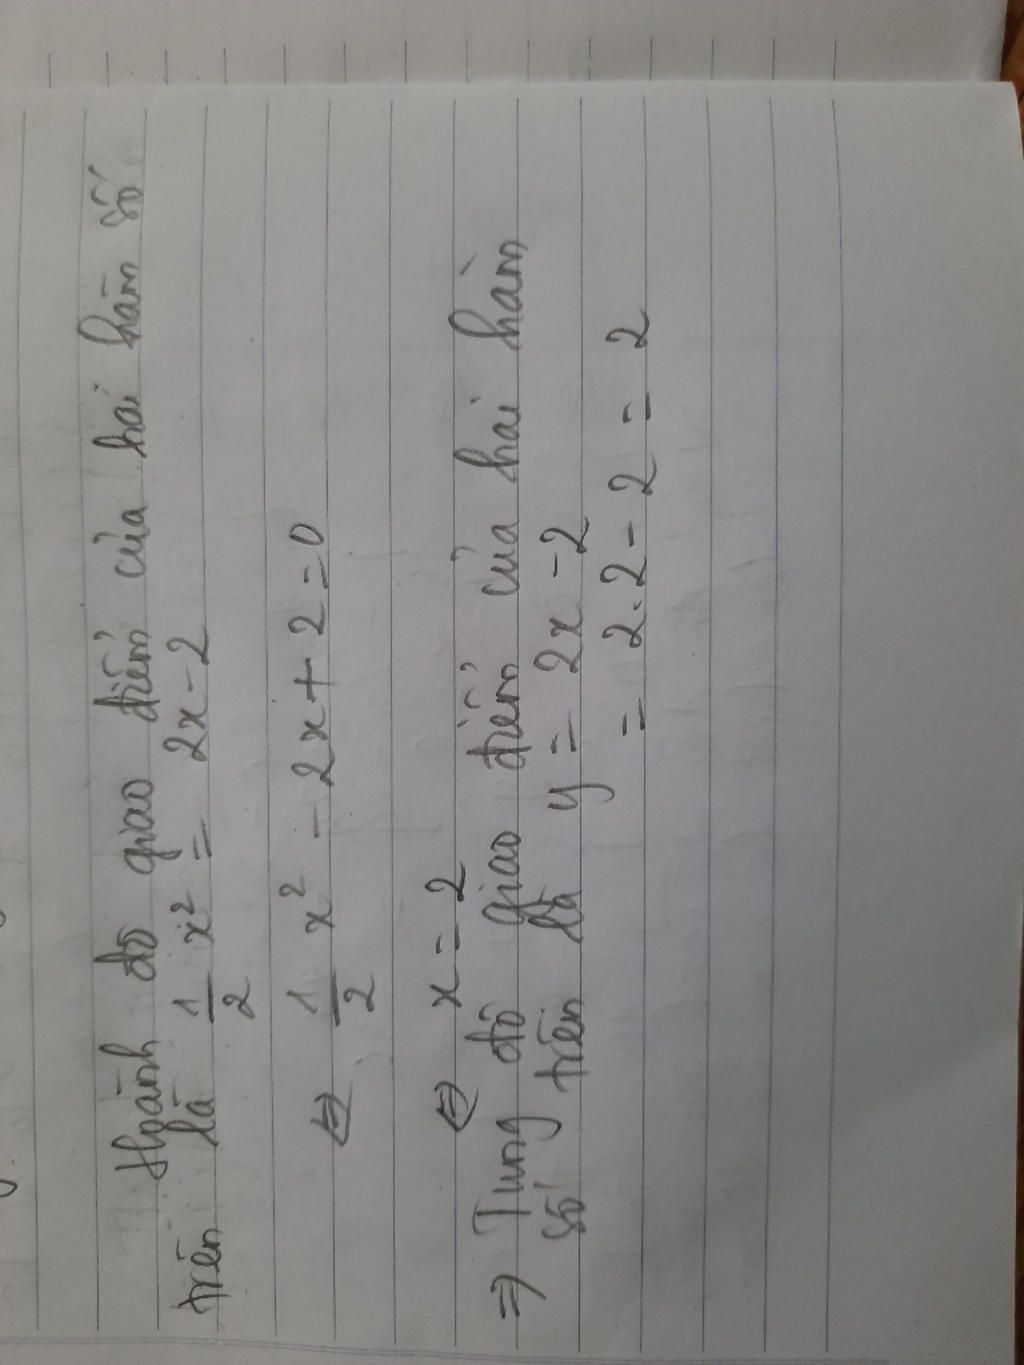 Hoành độ giao điểm của hai hàm số
trên là 1/2 x² = 2x - 2
⇔ 1/2 x² - 2x + 2 = 0
⇔ x = 2
⇒ Tung độ giao điểm của hai hàm
số trên là y = 2x - 2
= 2.2 - 2 = 2